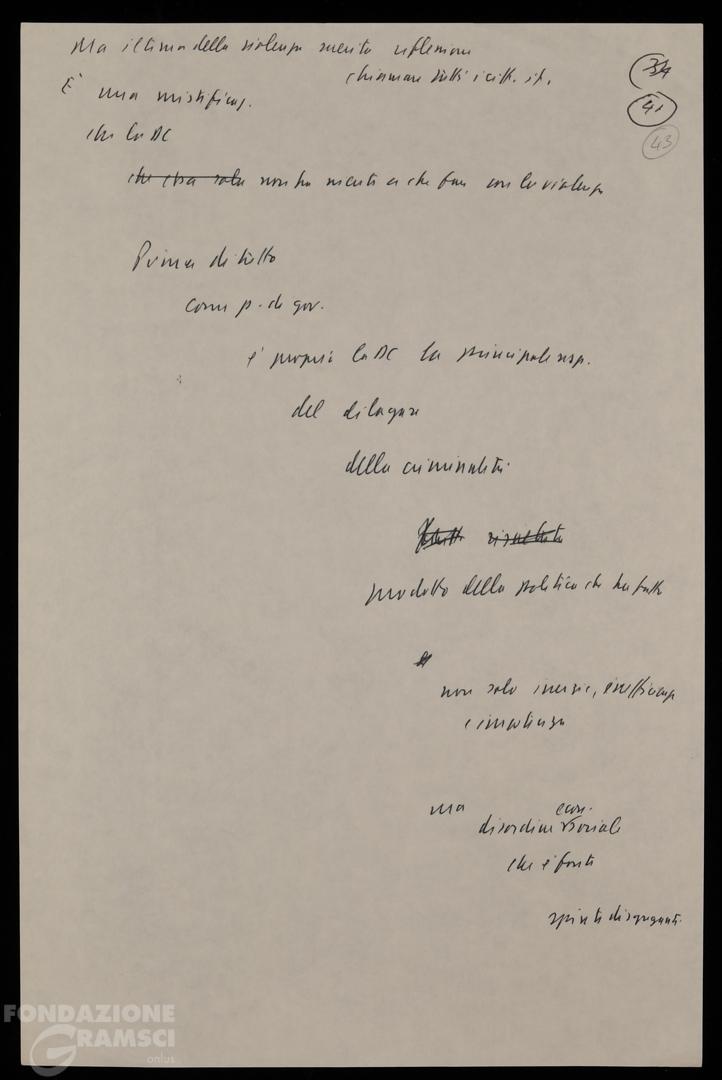 Ma il tima della violenza merita riflessione
chiamare tutti i citt. it.
È una mistificaz.
che la DC
che essa sola non ha nienti a che fare con la violenza
34
41
43
Prima di tutto
come p. di gov.
è propri la DC la principale resp.
del dilagare
della criminalità.
risultato
prodotto della politica che ha fatto
non solo inerzie, inefficienze
e impotenza
ma
econ.
disordine sociale
che è fonte
spinte disgreganti.
FONDAZIONE
GRAMSCI
onlus